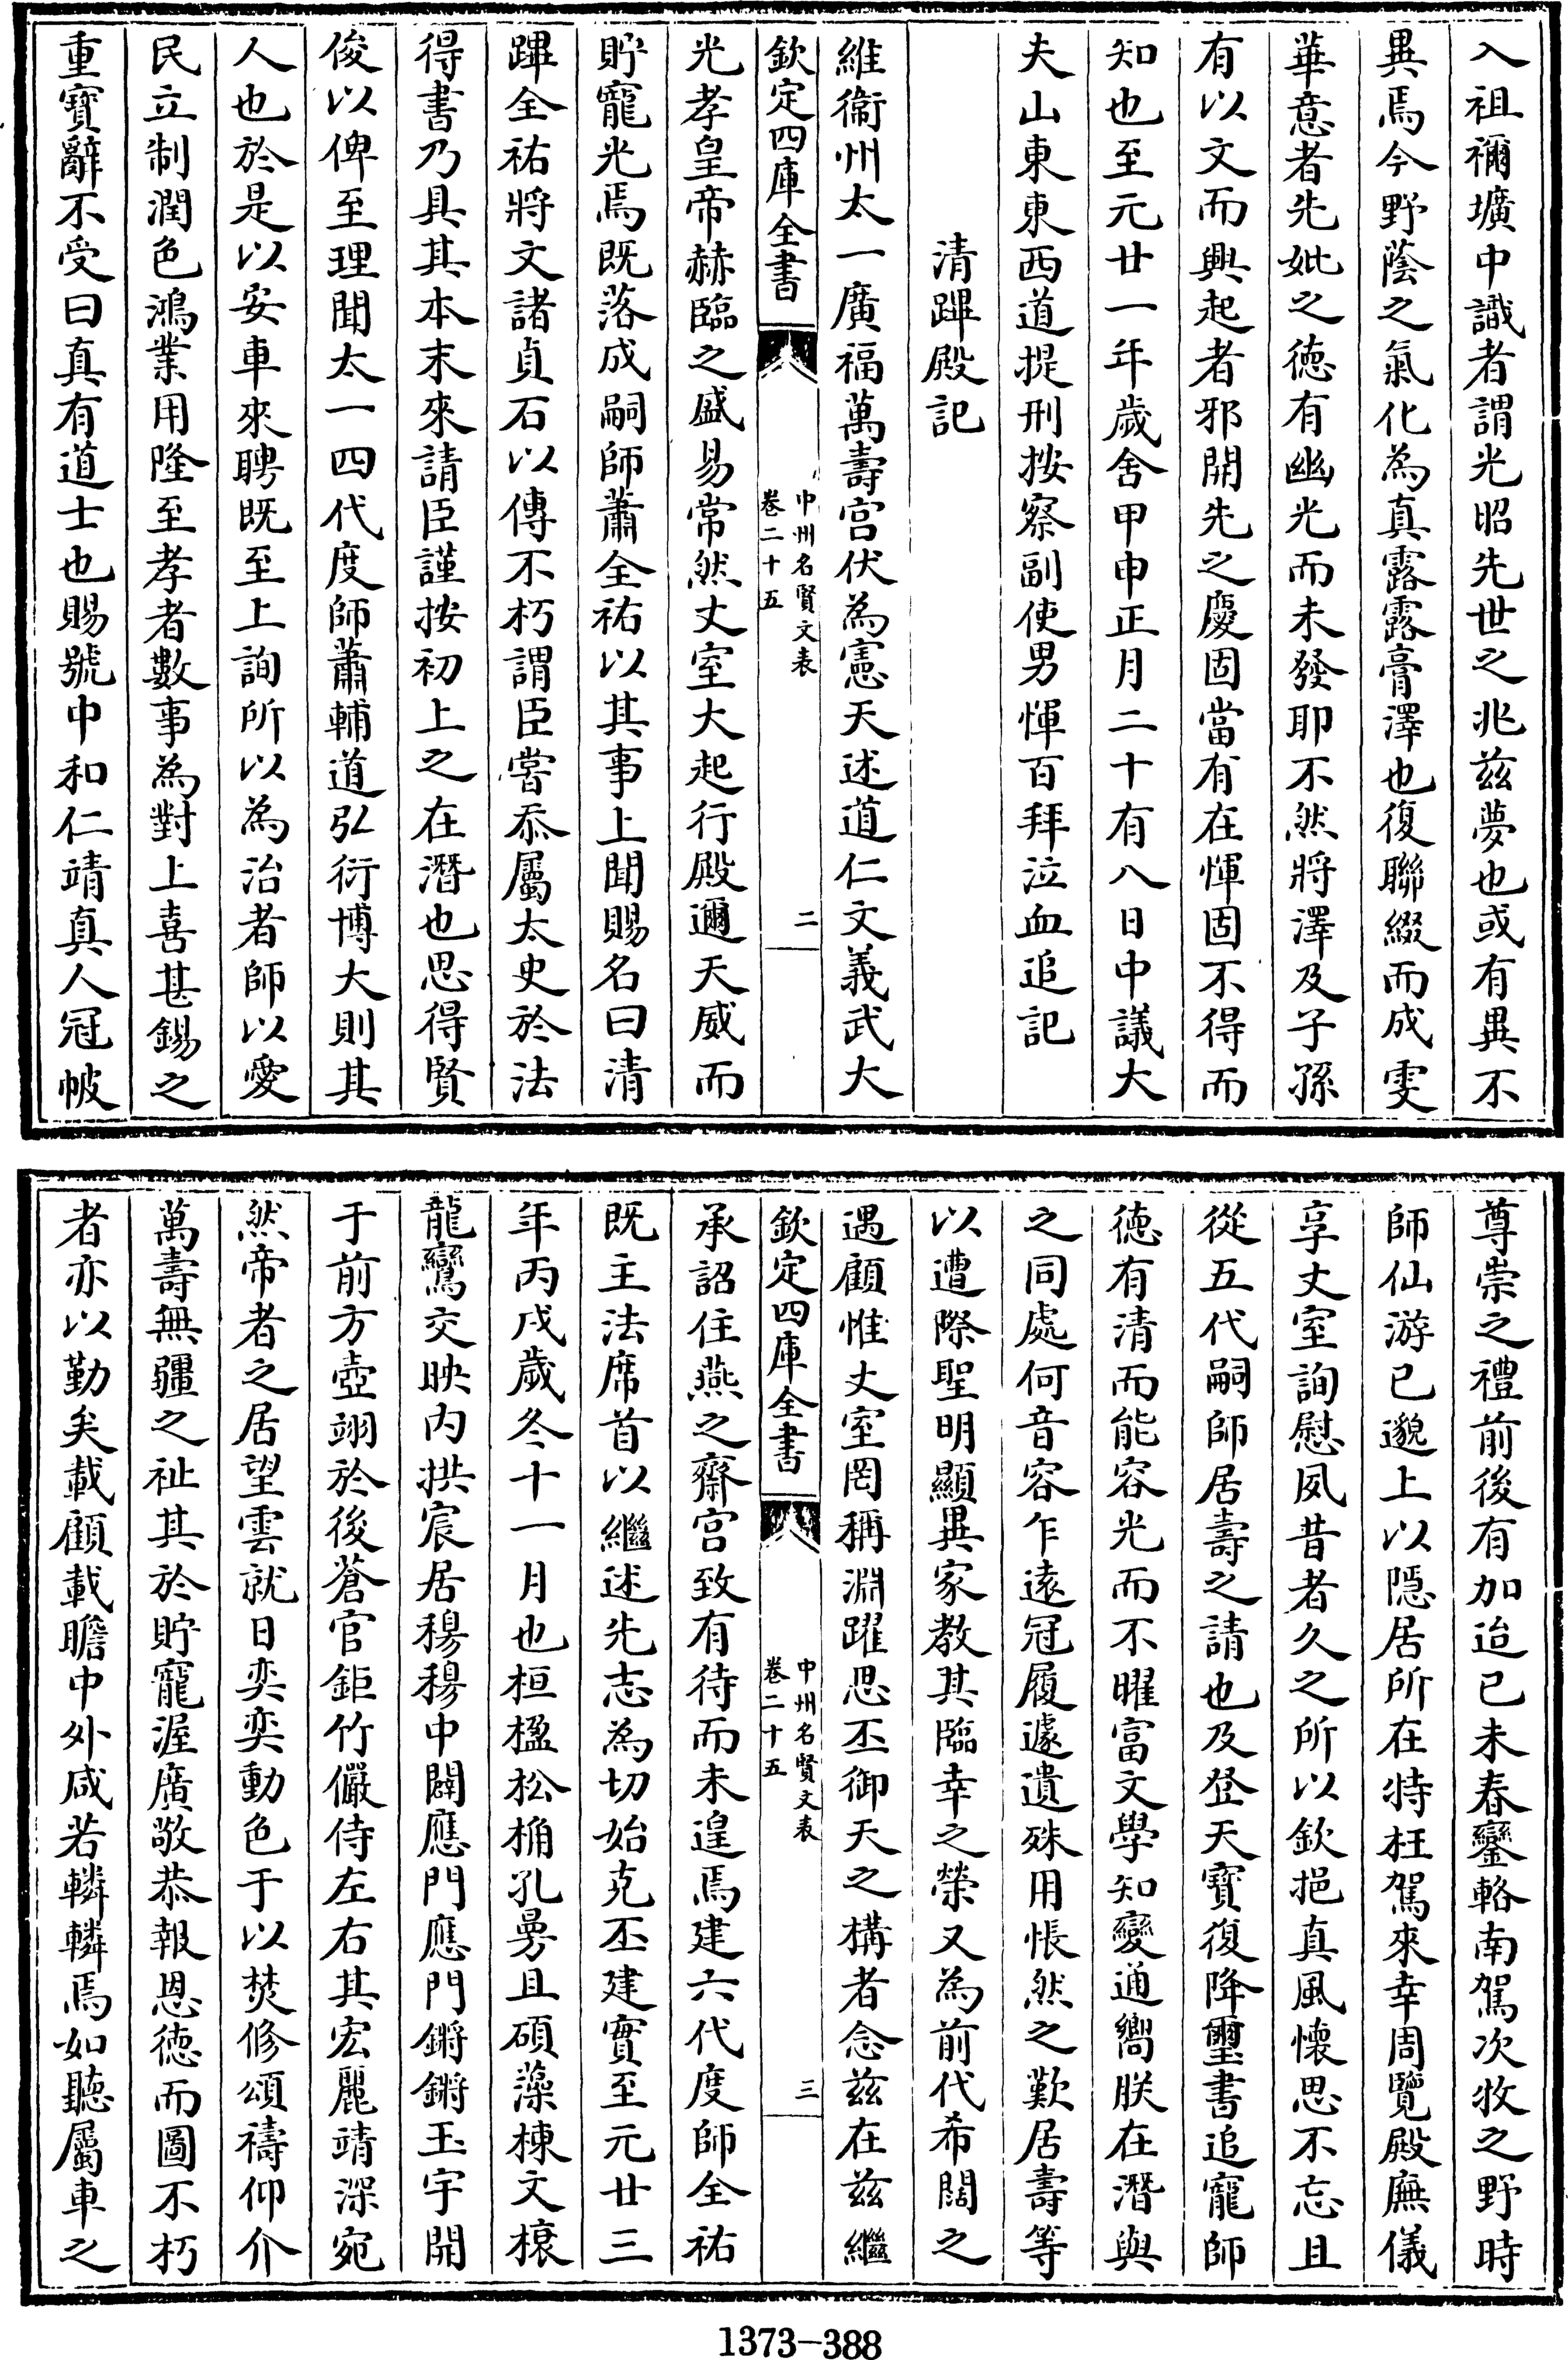 入祖禰壙中識者謂光昭先世之兆兹夢也或有異不
異焉今野蔭之氣化為真露露膏澤也復聯綴而成雯
華意者先妣之德有幽光而未發耶不然將澤及子孫
有以文而興起者邪開先之慶固當有在惲固不得而
知也至元廿一年歲舍甲申正月二十有八日中議大
夫山東東西道提刑按察副使男惲百拜泣血追記
清蹕殿記
維衞州太一廣福萬壽宫伏為憲天述道仁文義武大
欽定四庫全書
中州名賢文表
卷二十五
二
光孝皇帝赫臨之盛易常然丈室大起行殿邇天威而
貯寵光焉既落成嗣師蕭全祐以其事上聞賜名曰清
蹕全祐將文諸貞石以傳不朽謂臣嘗忝屬太史於法
得書乃具其本末來請臣謹按初上之在潛也思得賢
俊以俾至理聞太一四代度師蕭輔道弘衍博大則其
人也於是以安車來聘既至上詢所以為治者師以愛
民立制潤色鴻業用隆至孝者數事為對上喜甚錫之
重寶辭不受曰真有道士也賜號中和仁靖真人冠帔
尊崇之禮前後有加迨已未春鑾輅南駕次牧之野時
師仙游已邈上以隱居所在特枉駕來幸周覽殿廡儀
享丈室詢慰夙昔者久之所以欽挹真風懷思不忘且
從五代嗣師居壽之請也及登天寶復降璽書追寵師
德有清而能容光而不曜富文學知變通嚮朕在潛與
之同處何音容乍遠冠履遽遺殊用悵然之歎居壽等
以遭際聖明顯異家教其臨幸之榮又為前代希闊之
遇顧惟丈室罔稱淵躍思丕御天之構者念兹在兹繼
欽定四庫全書
中州名賢文表
卷二十五
三
承詔住燕之齋宫致有待而未遑焉建六代度師全祐
既主法席首以繼述先志為切始克丕建實至元廿三
年丙戌歲冬十一月也桓楹松桷孔曼且碩藻棟文榱
龍鸞交映内拱宸居穆穆中闢應門應門鏘鏘玉宇開
于前方壺翊於後蒼官鉅竹儼侍左右其宏麗靖深宛
然帝者之居望雲就日奕奕動色于以焚修頌禱仰介
萬壽無疆之祉其於貯寵渥廣敬恭報恩德而圖不朽
者亦以勤矣載顧載瞻中外咸若轔轔焉如聽屬車之
1373-388